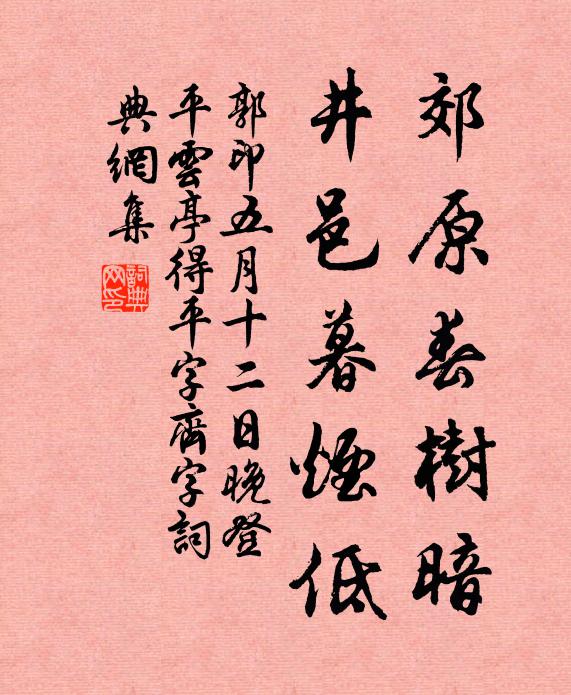 郊原春樹暗
井邑暮煙低
郭印五月十二日晚登
平雲亭得平字齊字詞
典網集
詞典网印